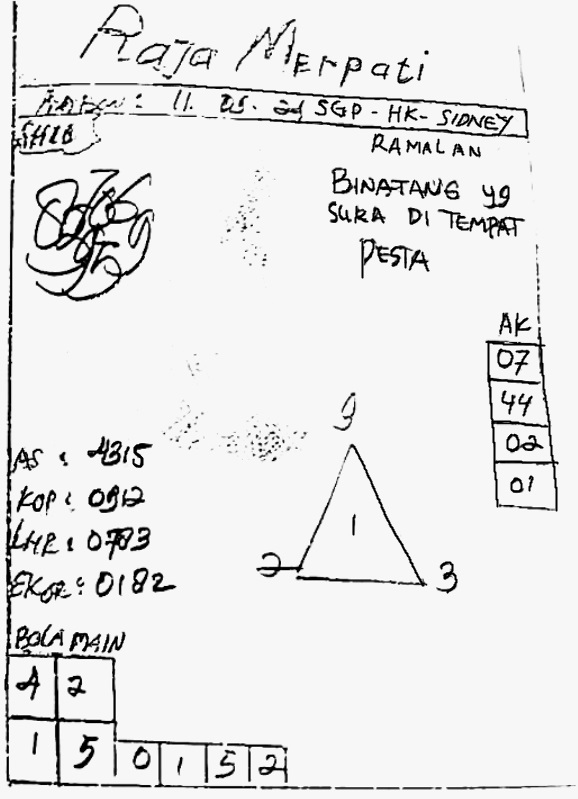 Raja Merpati
11. 05. 21 SGP - HK - SIDNEY
RAMALAN
BINATANG yg
SUKA DI TEMPAT
PESTA
AK
07
44
02
01
9
1
2 3
AS : 4315
KOP : 0912
0783
EKOR : 0182
BOLA MAIN
4 2
1 5 0 1 5 2